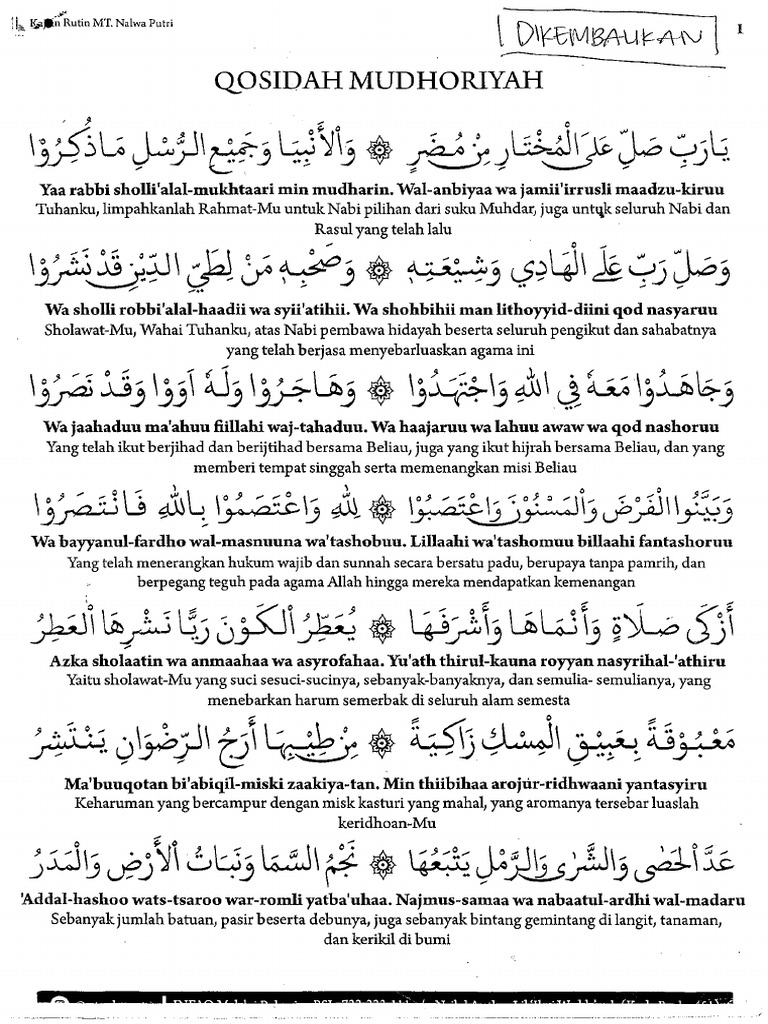 Rutin MT. Nalwa Putri
DIKEMBALIKAN
1
QOSIDAH MUDHORIYAH
يَارَبِّ صَلِّ عَلَى الْمُخْتَارِ مِنْ مُضَرٍ ۞ وَالْأَنْبِيَا وَجَمِيْعِ الرُّسْلِ مَاذُكِرُوْا
Yaa rabbi sholli'alal-mukhtaari min mudharin. Wal-anbiyaa wa jamii'irrusli maadzu-kiruu
Tuhanku, limpahkanlah Rahmat-Mu untuk Nabi pilihan dari suku Muhdar, juga untuk seluruh Nabi dan
Rasul yang telah lalu
وَصَلِّ رَبِّ عَلَى الْهَادِي وَشِيْعَتِهِ ۞ وَصَحْبِهِ مَنْ لِطَيِّ الدِّيْنِ قَدْ نَشَرُوْا
Wa sholli robbi'alal-haadii wa syii'atihii. Wa shohbihii man lithoyyid-diini qod nasyaruu
Sholawat-Mu, Wahai Tuhanku, atas Nabi pembawa hidayah beserta seluruh pengikut dan sahabatnya
yang telah berjasa menyebarluaskan agama ini
وَجَاهَدُوْا مَعَهُ فِي اللهِ وَاجْتَهَدُوْا ۞ وَهَاجَرُوْا وَلَهُ اَوَوْا وَقَدْ نَصَرُوْا
Wa jaahaduu ma'ahuu fiillahi waj-tahaduu. Wa haajaruu wa lahuu awaw wa qod nashoruu
Yang telah ikut berjihad dan berijtihad bersama Beliau, juga yang ikut hijrah bersama Beliau, dan yang
memberi tempat singgah serta memenangkan misi Beliau
وَبَيَّنُوا الْفَرْضَ وَالْمَسْنُوْنَ وَاعْتَصَبُوْا ۞ لِلهِ وَاعْتَصَمُوْا بِاللهِ فَانْتَصَرُوْا
Wa bayyanul-fardho wal-masnuuna wa'tashobuu. Lillaahi wa'tashomuu billaahi fantashoruu
Yang telah menerangkan hukum wajib dan sunnah secara bersatu padu, berupaya tanpa pamrih, dan
berpegang teguh pada agama Allah hingga mereka mendapatkan kemenangan
أَزْكَى صَلَاةٍ وَأَنْمَاهَا وَأَشْرَفَهَا ۞ يُعَطِّرُ الْكَوْنَ رَيًّا نَشْرِهَا الْعَطِرُ
Azka sholaatin wa anmaahaa wa asyrofahaa. Yu'ath thirul-kauna royyan nasyrihal-'athiru
Yaitu sholawat-Mu yang suci sesuci-sucinya, sebanyak-banyaknya, dan semulia- semulianya, yang
menebarkan harum semerbak di seluruh alam semesta
مَعْبُوْقَةً بِعَبِيْقِ الْمِسْكِ زَاكِيَةً ۞ مِنْ طِيْبِهَا أَرَجُ الرِّضْوَانِ يَنْتَشِرُ
Ma'buuqotan bi'abiqil-miski zaakiya-tan. Min thiibihaa arojur-ridhwaani yantasyiru
Keharuman yang bercampur dengan misk kasturi yang mahal, yang aromanya tersebar luaslah
keridhoan-Mu
عَدَّ الْحَصٰى وَالثَّرٰى وَالرَّمْلِ يَتْبَعُهَا ۞ نَجْمُ السَّمَا وَنَبَاتُ الْأَرْضِ وَالْمَدَرُ
'Addal-hashoo wats-tsaroo war-romli yatba'uhaa. Najmus-samaa wa nabaatul-ardhi wal-madaru
Sebanyak jumlah batuan, pasir beserta debunya, juga sebanyak bintang gemintang di langit, tanaman,
dan kerikil di bumi